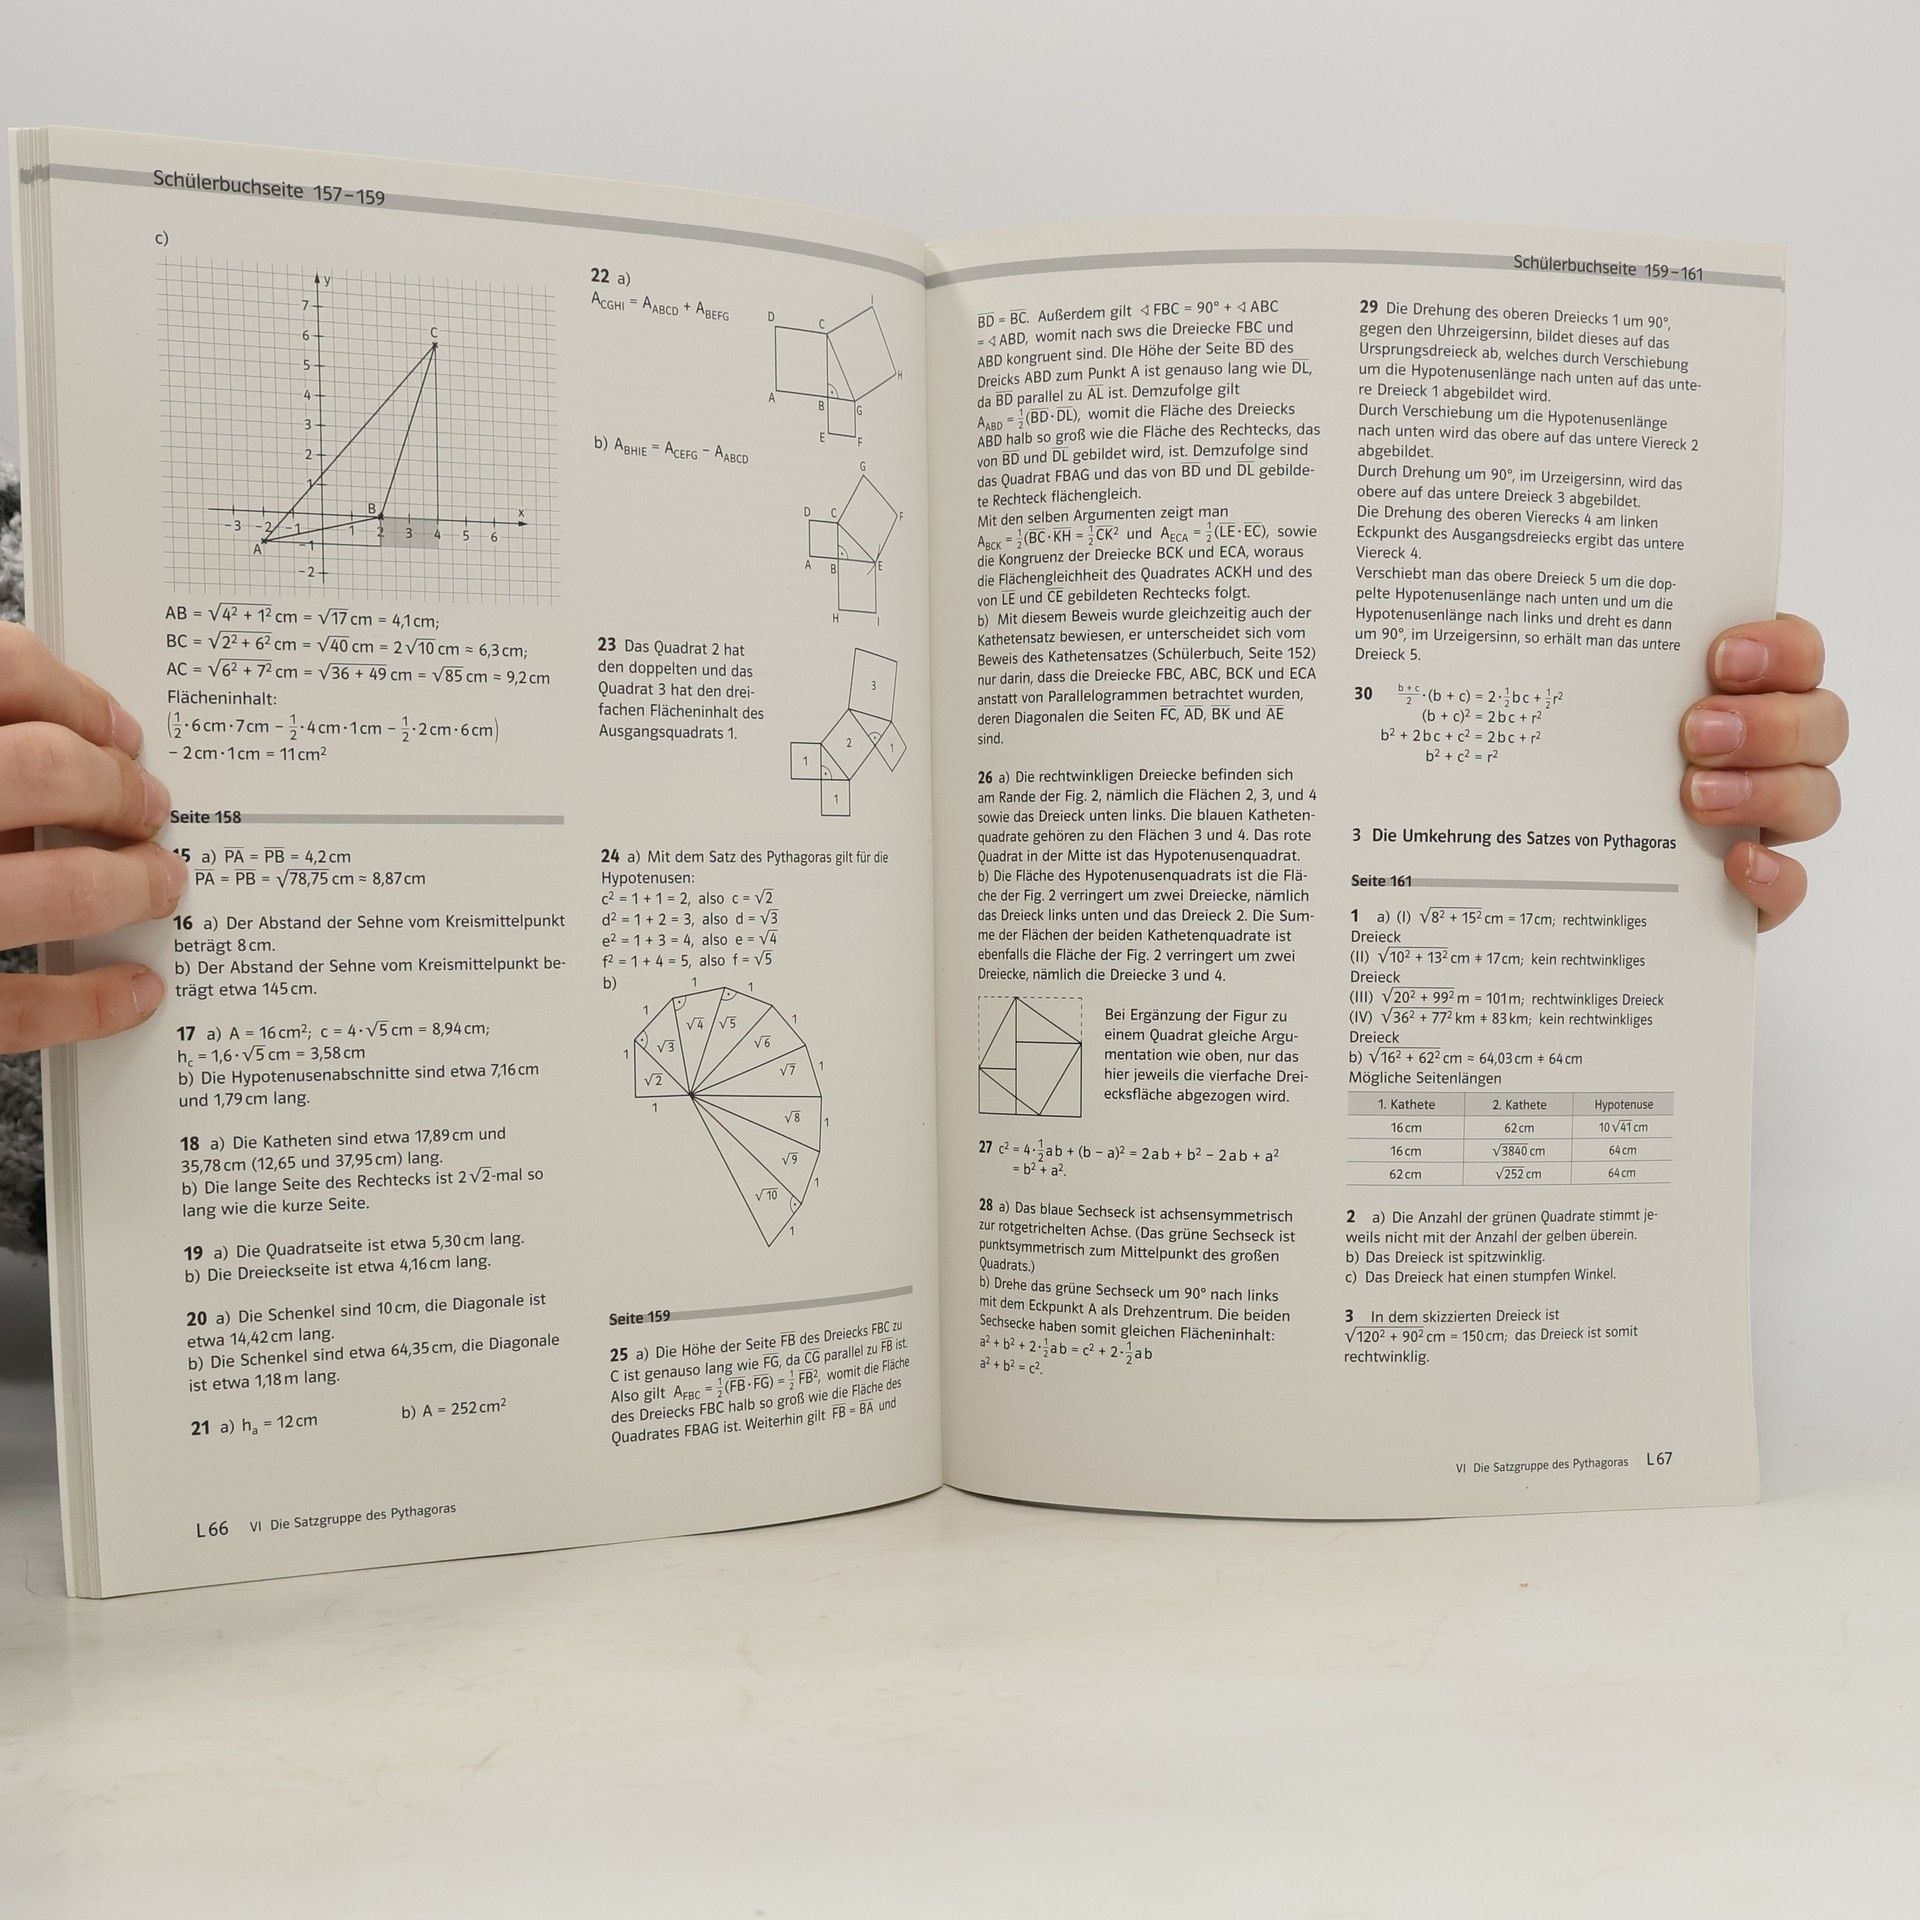 Schülerbuchseite 157–159
c)
y
7
6
5
4
3
2
1
-3 -2 -1 1 2 3 4 5 6 x
-1
-2
A B C
AB = √(4² + 1²) cm = √17 cm = 4,1 cm;
BC = √(2² + 6²) cm = √40 cm = 2√10 cm ≈ 6,3 cm;
AC = √(6² + 7²) cm = √(36 + 49) cm = √85 cm ≈ 9,2 cm
Flächeninhalt:
(½·6 cm·7 cm – ½·4 cm·1 cm – ½·2 cm·6 cm)
– 2 cm·1 cm = 11 cm²
Seite 158
15 a) P̅A̅ = P̅B̅ = 4,2 cm
P̅A̅ = P̅B̅ = √78,75 cm ≈ 8,87 cm
16 a) Der Abstand der Sehne vom Kreismittelpunkt
beträgt 8 cm.
b) Der Abstand der Sehne vom Kreismittelpunkt be-
trägt etwa 145 cm.
17 a) A = 16 cm²; c = 4·√5 cm = 8,94 cm;
h_c = 1,6·√5 cm = 3,58 cm
b) Die Hypotenusenabschnitte sind etwa 7,16 cm
und 1,79 cm lang.
18 a) Die Katheten sind etwa 17,89 cm und
35,78 cm (12,65 und 37,95 cm) lang.
b) Die lange Seite des Rechtecks ist 2√2-mal so
lang wie die kurze Seite.
19 a) Die Quadratseite ist etwa 5,30 cm lang.
b) Die Dreieckseite ist etwa 4,16 cm lang.
20 a) Die Schenkel sind 10 cm, die Diagonale ist
etwa 14,42 cm lang.
b) Die Schenkel sind etwa 64,35 cm, die Diagonale
ist etwa 1,18 m lang.
21 a) h_a = 12 cm b) A = 252 cm²
L 66 VI Die Satzgruppe des Pythagoras
22 a)
A_CGHI = A_ABCD + A_BEFG
D C I H A B G E F
b) A_BHIE = A_CEFG – A_ABCD
G D C F A B E H I
23 Das Quadrat 2 hat
den doppelten und das
Quadrat 3 hat den drei-
fachen Flächeninhalt des
Ausgangsquadrats 1.
3
2 1
1
1
24 a) Mit dem Satz des Pythagoras gilt für die
Hypotenusen:
c² = 1 + 1 = 2, also c = √2
d² = 1 + 2 = 3, also d = √3
e² = 1 + 3 = 4, also e = √4
f² = 1 + 4 = 5, also f = √5
b)
1 1 1 1 1 1 1 1 1 1
√2 √3 √4 √5 √6 √7 √8 √9 √10
Seite 159
25 a) Die Höhe der Seite F̅B̅ des Dreiecks FBC zu
C ist genauso lang wie F̅G̅, da C̅G̅ parallel zu F̅B̅ ist.
Also gilt A_FBC = ½(F̅B̅·F̅G̅) = ½ F̅B̅², womit die Fläche
des Dreiecks FBC halb so groß wie die Fläche des
Quadrates FBAG ist. Weiterhin gilt F̅B̅ = B̅A̅ und
Schülerbuchseite 159–161
B̅D̅ = B̅C̅. Außerdem gilt ∢ FBC = 90° + ∢ ABC
= ∢ ABD, womit nach sws die Dreiecke FBC und
ABD kongruent sind. DIe Höhe der Seite B̅D̅ des
Dreicks ABD zum Punkt A ist genauso lang wie D̅L̅,
da B̅D̅ parallel zu A̅L̅ ist. Demzufolge gilt
A_ABD = ½(B̅D̅·D̅L̅), womit die Fläche des Dreiecks
ABD halb so groß wie die Fläche des Rechtecks, das
von B̅D̅ und D̅L̅ gebildet wird, ist. Demzufolge sind
das Quadrat FBAG und das von B̅D̅ und D̅L̅ gebilde-
te Rechteck flächengleich.
Mit den selben Argumenten zeigt man
A_BCK = ½(B̅C̅·K̅H̅ = ½C̅K̅² und A_ECA = ½(L̅E̅·E̅C̅), sowie
die Kongruenz der Dreiecke BCK und ECA, woraus
die Flächengleichheit des Quadrates ACKH und des
von L̅E̅ und C̅E̅ gebildeten Rechtecks folgt.
b) Mit diesem Beweis wurde gleichzeitig auch der
Kathetensatz bewiesen, er unterscheidet sich vom
Beweis des Kathetensatzes (Schülerbuch, Seite 152)
nur darin, dass die Dreiecke FBC, ABC, BCK und ECA
anstatt von Parallelogrammen betrachtet wurden,
deren Diagonalen die Seiten F̅C̅, A̅D̅, B̅K̅ und A̅E̅
sind.
26 a) Die rechtwinkligen Dreiecke befinden sich
am Rande der Fig. 2, nämlich die Flächen 2, 3, und 4
sowie das Dreieck unten links. Die blauen Katheten-
quadrate gehören zu den Flächen 3 und 4. Das rote
Quadrat in der Mitte ist das Hypotenusenquadrat.
b) Die Fläche des Hypotenusenquadrats ist die Flä-
che der Fig. 2 verringert um zwei Dreiecke, nämlich
das Dreieck links unten und das Dreieck 2. Die Sum-
me der Flächen der beiden Kathetenquadrate ist
ebenfalls die Fläche der Fig. 2 verringert um zwei
Dreiecke, nämlich die Dreiecke 3 und 4.
Bei Ergänzung der Figur zu
einem Quadrat gleiche Argu-
mentation wie oben, nur das
hier jeweils die vierfache Drei-
ecksfläche abgezogen wird.
27 c² = 4·½ab + (b – a)² = 2ab + b² – 2ab + a²
= b² + a².
28 a) Das blaue Sechseck ist achsensymmetrisch
zur rotgetrichelten Achse. (Das grüne Sechseck ist
punktsymmetrisch zum Mittelpunkt des großen
Quadrats.)
b) Drehe das grüne Sechseck um 90° nach links
mit dem Eckpunkt A als Drehzentrum. Die beiden
Sechsecke haben somit gleichen Flächeninhalt:
a² + b² + 2·½ab = c² + 2·½ab
a² + b² = c².
29 Die Drehung des oberen Dreiecks 1 um 90°,
gegen den Uhrzeigersinn, bildet dieses auf das
Ursprungsdreieck ab, welches durch Verschiebung
um die Hypotenusenlänge nach unten auf das unte-
re Dreieck 1 abgebildet wird.
Durch Verschiebung um die Hypotenusenlänge
nach unten wird das obere auf das untere Viereck 2
abgebildet.
Durch Drehung um 90°, im Urzeigersinn, wird das
obere auf das untere Dreieck 3 abgebildet.
Die Drehung des oberen Vierecks 4 am linken
Eckpunkt des Ausgangsdreiecks ergibt das untere
Viereck 4.
Verschiebt man das obere Dreieck 5 um die dop-
pelte Hypotenusenlänge nach unten und um die
Hypotenusenlänge nach links und dreht es dann
um 90°, im Urzeigersinn, so erhält man das untere
Dreieck 5.
30 (b + c)/2·(b + c) = 2·½bc + ½r²
(b + c)² = 2bc + r²
b² + 2bc + c² = 2bc + r²
b² + c² = r²
3 Die Umkehrung des Satzes von Pythagoras
Seite 161
1 a) (I) √(8² + 15²) cm = 17 cm; rechtwinkliges
Dreieck
(II) √(10² + 13²) cm ≠ 17 cm; kein rechtwinkliges
Dreieck
(III) √(20² + 99²) m = 101 m; rechtwinkliges Dreieck
(IV) √(36² + 77²) km ≠ 83 km; kein rechtwinkliges
Dreieck
b) √(16² + 62²) cm ≈ 64,03 cm ≠ 64 cm
Mögliche Seitenlängen
1. Kathete 2. Kathete Hypotenuse
16 cm 62 cm 10√41 cm
16 cm √3840 cm 64 cm
62 cm √252 cm 64 cm
2 a) Die Anzahl der grünen Quadrate stimmt je-
weils nicht mit der Anzahl der gelben überein.
b) Das Dreieck ist spitzwinklig.
c) Das Dreieck hat einen stumpfen Winkel.
3 In dem skizzierten Dreieck ist
√(120² + 90²) cm = 150 cm; das Dreieck ist somit
rechtwinklig.
VI Die Satzgruppe des Pythagoras L 67